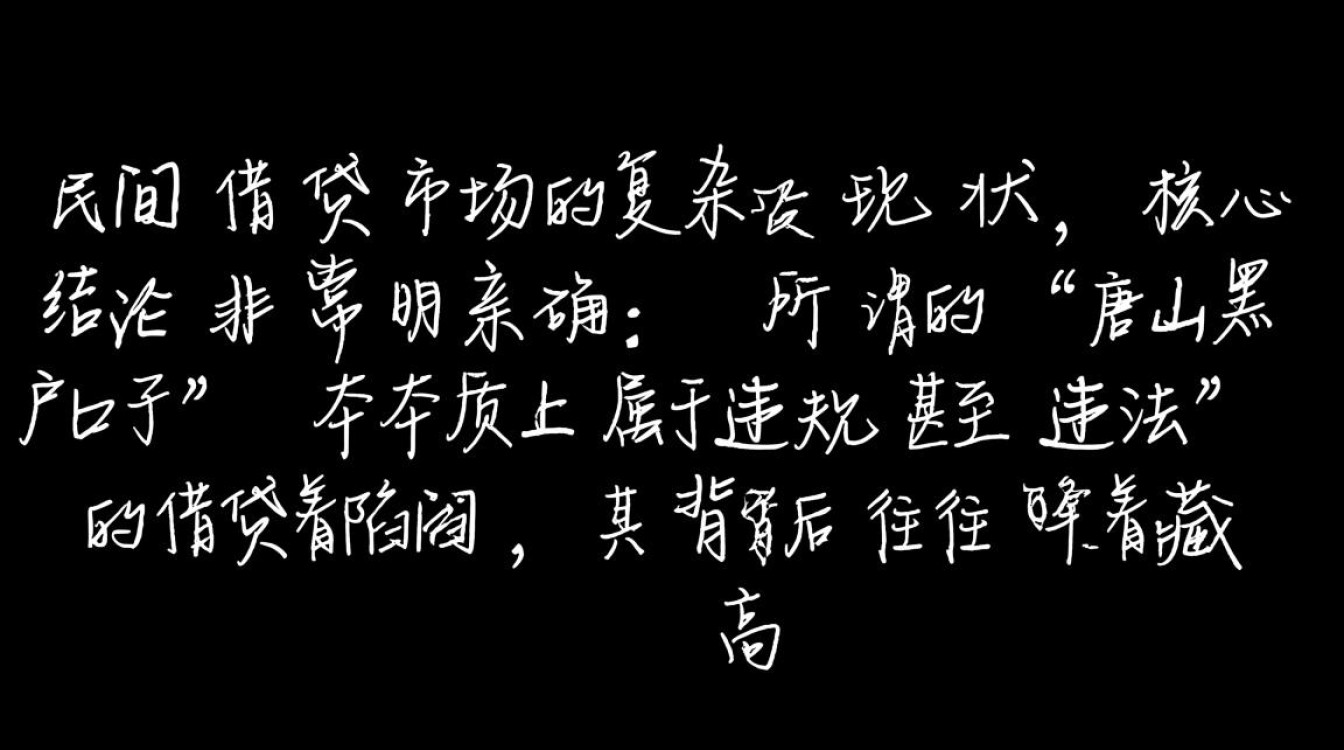 民间借贷市场的复杂 现状，核心
结论非常明亲确： 所谓的“唐山黑
户口子” 本本质上属于违规甚至违法”
的借贷着陷阎，其背背后往往 着藏
高